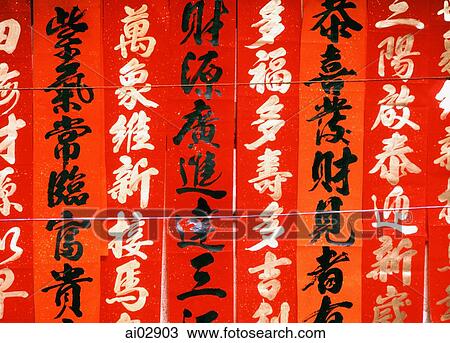 三陽啟泰迎新歲
恭喜發財見者有
多福多壽多吉利
財源廣進達三江
萬象維新接馬
紫氣常臨富貴
ai02903 www.fotosearch.com